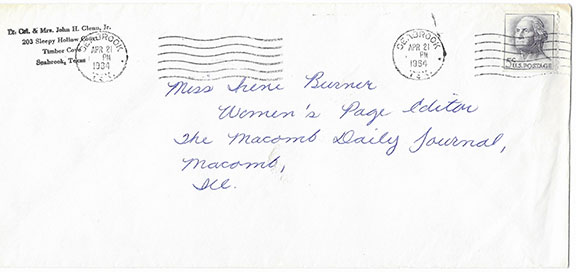 Lt. Col. & Mrs. John H. Glenn, Jr.
203 Sleepy Hollow Court
Timber Cove
Seabrook, Texas
SEABROOK
APR 21
PM
1964
TEX.
SEABROOK
APR 21
PM
1964
TEX.
5¢ U.S. POSTAGE
Miss Irene Burner
Women's Page Editor
The Macomb Daily Journal,
Macomb,
Ill.